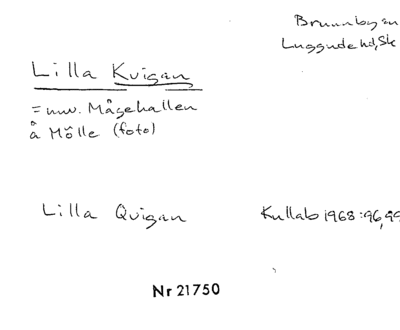 Brunnby sn
Luggude hd, Sk
Lilla Kvigan
= nuv. Mågehallen
å Mölle (foto)
Lilla Quigan Kullab 1968:96,99
Nr 21750